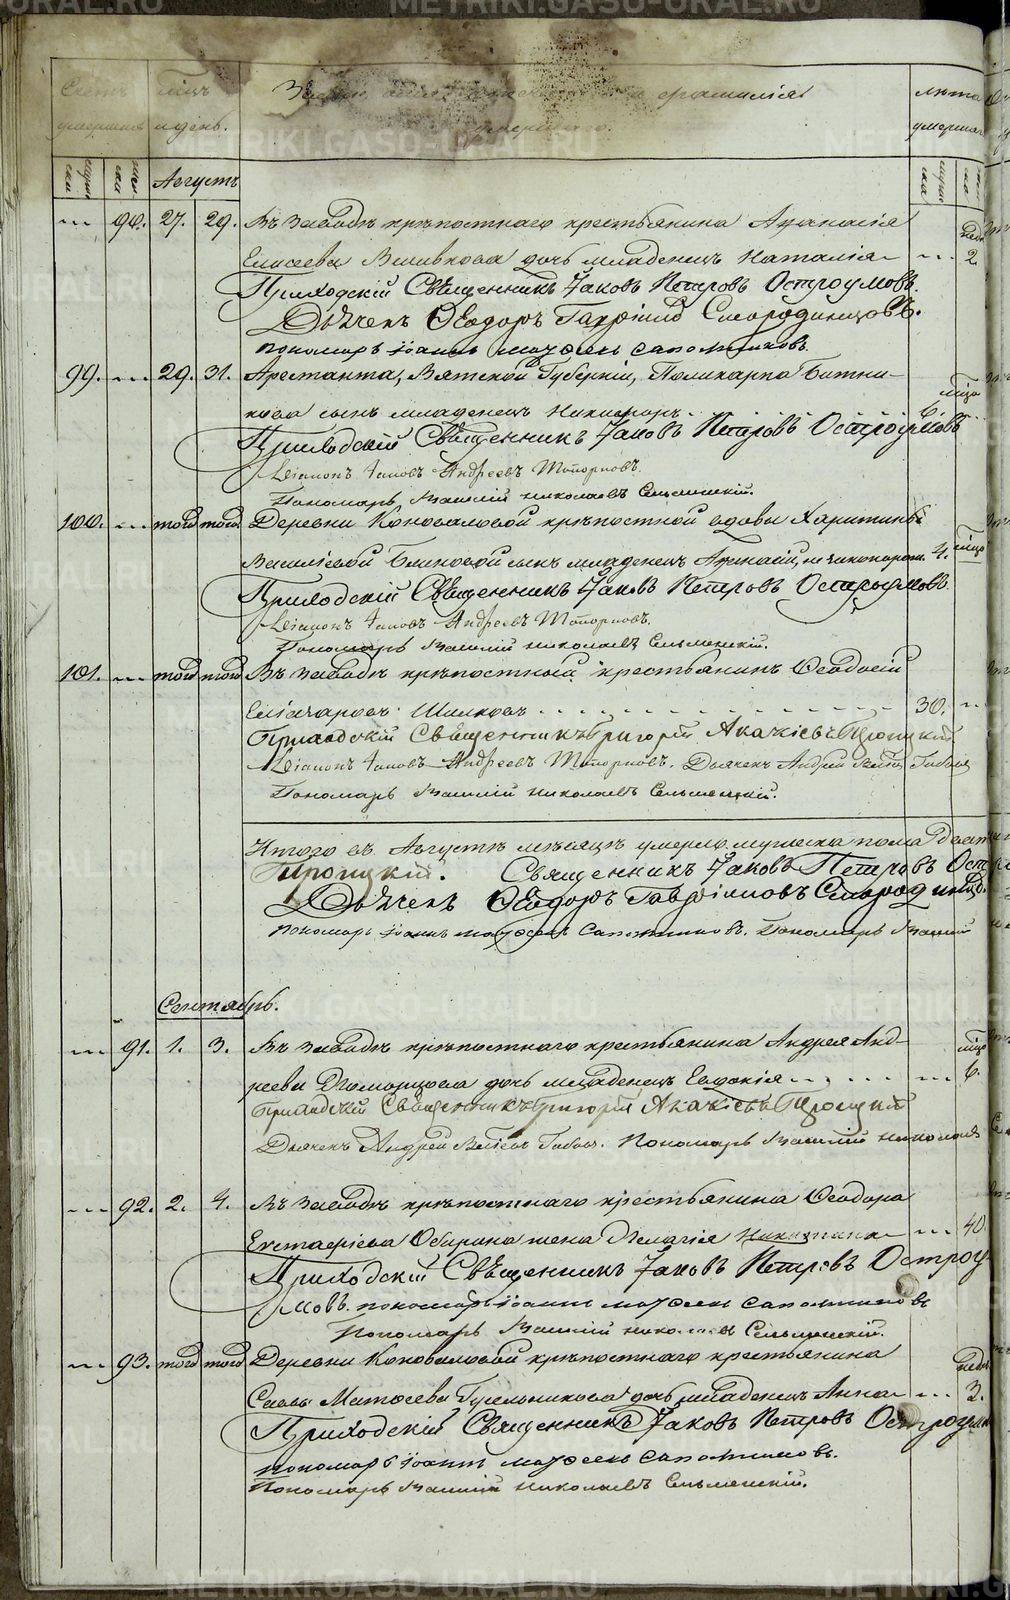 METRIKI.GASO-URAL.RU
Счетъ умершихъ
мѣсяцъ и день.
Званіе, имя, отчество и фамилія умершаго.
лѣта умершаго
Августъ
90. 27. 29. Въ Заводѣ крѣпостнаго крестьянина Аѳанасія
Елисеева Вшивкова дочь младенецъ Наталія 2 нед.
Приходскій Священникъ Іаковъ Петровъ Остроумовъ.
Дьячекъ Ѳеодоръ Гавріиловъ Смородинцовъ.
пономарь Іоаннъ Матѳеевъ Сапожниковъ.
99. 29. 31. Арестанта, Вятской Губерніи, Поликарпа Битни-
кова сынъ младенецъ Никифоръ 6. мѣся
Приходскій Священникъ Іаковъ Петровъ Остроумовъ
Діаконъ Іаковъ Андреевъ Топорковъ.
Пономарь Василій Николаевъ Сельменскій.
100. тогожъ тогожъ Деревни Коноваловой крѣпостной вдовы Харитины
Васильевой Блиновой сынъ младенецъ Аѳанасій, незаконорож. 4. мѣся
Приходскій Священникъ Іаковъ Петровъ Остроумовъ.
Діаконъ Іаковъ Андреевъ Топорковъ.
Пономарь Василій Николаевъ Сельменскій.
101. тогожъ тогожъ Въ Заводѣ крѣпостный крестьянинъ Ѳеодосій
Шилковъ 30.
Приходскій Священникъ Григорій Акакіевъ Троицкій
Діаконъ Іаковъ Андреевъ Топорковъ. Дьячекъ Андрей
Пономарь Василій Николаевъ Сельменскій.
Итого въ Августѣ мѣсяцѣ умерло мужеска пола
Троицкій. Священникъ Іаковъ Петровъ Остро
Дьячекъ Ѳеодоръ Гавріиловъ Смородинцо
пономарь Іоаннъ Матѳеевъ Сапожниковъ. Пономарь Василій
Сентябрь.
91. 1. 3. Въ Заводѣ крѣпостнаго крестьянина Андрея Анд-
реева Поморцова дочь младенецъ Евдокія 6. мѣся
Приходскій Священникъ Григорій Акакіевъ Троицкій
Дьячекъ Андрей Пономарь Василій Николаевъ
92. 2. 4. Въ Заводѣ крѣпостнаго крестьянина Ѳеодора
Евстафіева Обирина жена Пелагія 40.
Приходскій Священникъ Іаковъ Петровъ Остроу-
мовъ. пономарь Іоаннъ Матѳеевъ Сапожниковъ
Пономарь Василій Николаевъ Сельменскій.
93. тогожъ тогожъ Деревни Коноваловой крѣпостнаго крестьянина
Савы Матѳеева Гусельникова дочь младенецъ Анна 3. недѣл
Приходскій Священникъ Іаковъ Петровъ Остроумов
пономарь Іоаннъ Матѳеевъ Сапожниковъ.
Пономарь Василій Николаевъ Сельменскій.